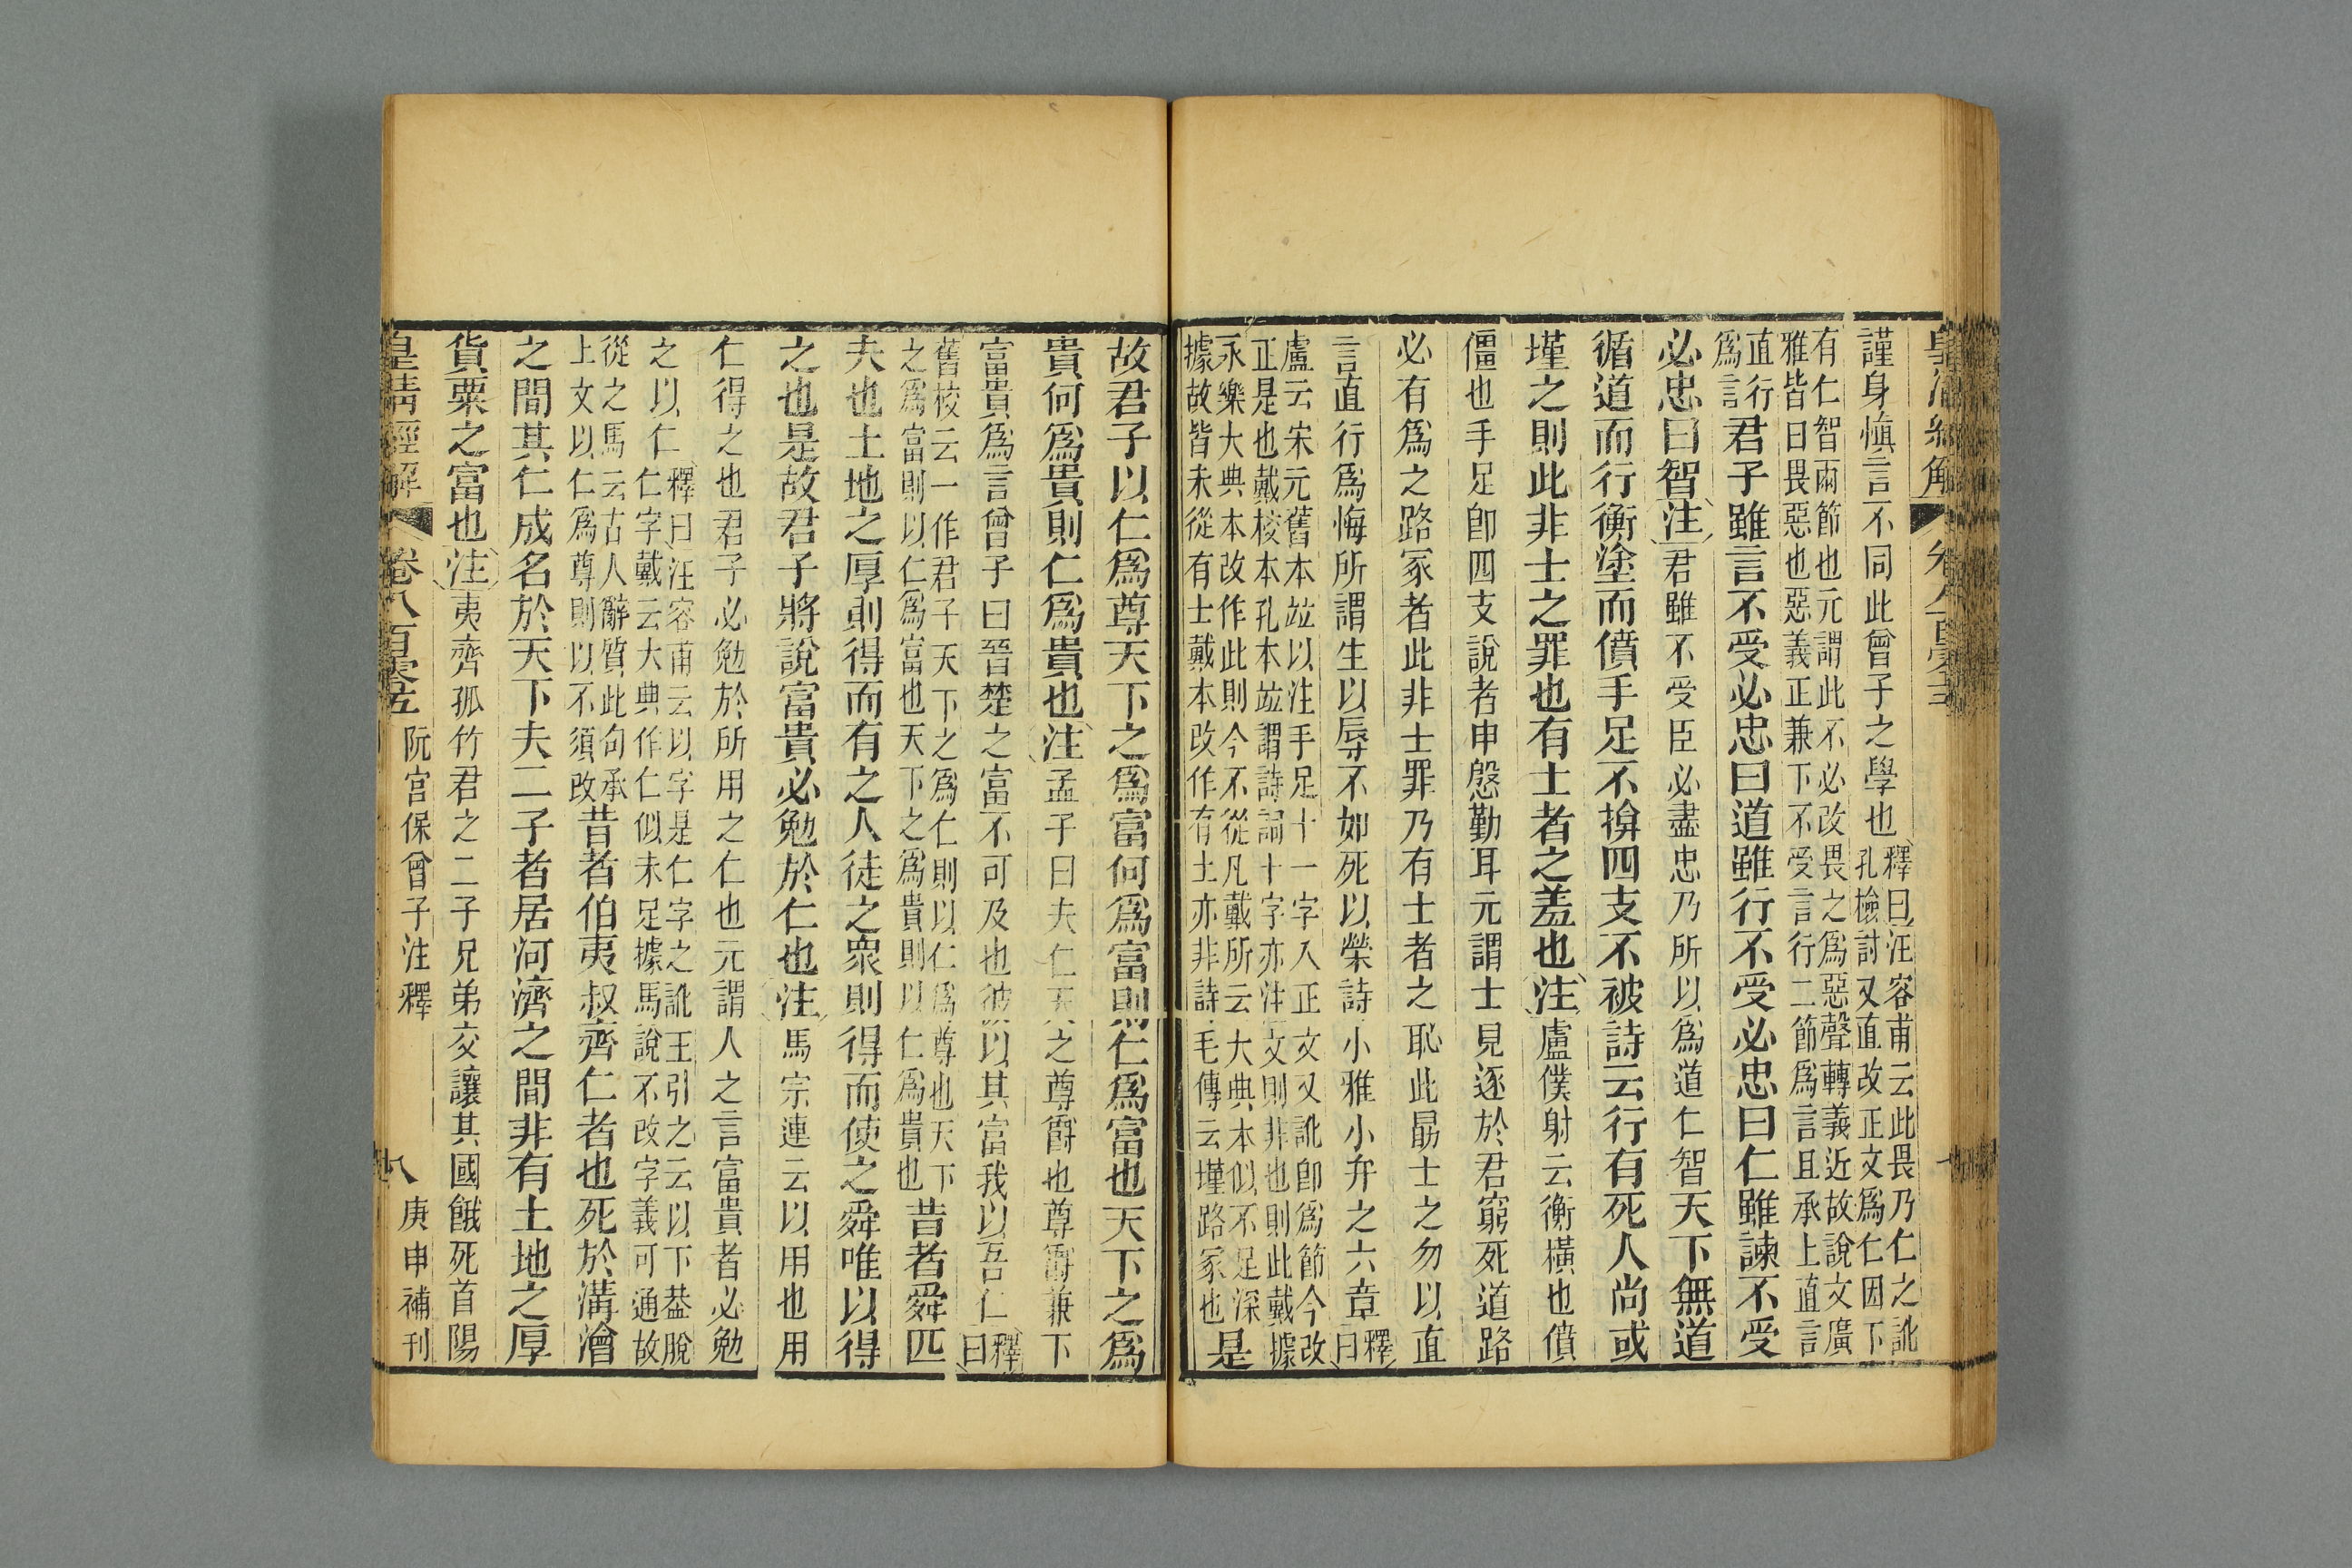 謹身愼言不同此曾子之學也釋曰汪容甫云此畏乃仁之訛
孔檢討又直改正文爲仁因下
有仁智兩節也元謂此不必改畏之爲惡聲轉義近故說文廣
雅皆曰畏惡也惡義正兼下不受言行二節爲言且承上直言
直行
爲言君子雖言不受必忠曰道雖行不受必忠曰仁雖諫不受
必忠曰智注君雖不受臣必盡忠乃所以爲道仁智天下無道
循道而行衡塗而僨手足不揜四支不被詩云行有死人尚或
墐之則此非士之罪也有士者之羞也注盧僕射云衡橫也僨
僵也手足卽四支說者申慇勤耳元謂士見逐於君窮死道路
必有爲之路冢者此非士罪乃有士者之恥此勗士之勿以直
言直行爲悔所謂生以辱不如死以榮詩小雅小弁之六章釋曰
盧云宋元舊本竝以注手足十一字入正文又訛卽爲節今改
正是也戴校本孔本竝謂詩詞十字亦注文則非也則此戴據
永樂大典本改作此則今不從凡戴所云大典本似不足深
據故皆未從有士戴本改作有土亦非詩毛傳云墐路冢也是
故君子以仁爲尊天下之爲富何爲富則仁爲富也天下之爲
貴何爲貴則仁爲貴也注孟子曰夫仁天之尊爵也尊爵兼下
富貴爲言曾子曰晉楚之富不可及也彼以其富我以吾仁釋曰
舊校云一作君子天下之爲仁則以仁爲尊也天下
之爲富則以仁爲富也天下之爲貴則以仁爲貴也昔者舜匹
夫也土地之厚則得而有之人徒之衆則得而使之舜唯以得
之也是故君子將說富貴必勉於仁也注馬宗連云以用也用
仁得之也君子必勉於所用之仁也元謂人之言富貴者必勉
之以仁釋曰汪容甫云以字是仁字之訛王引之云以下葢脫
仁字戴云大典作仁似未足據馬說不改字義可通故
從之馬云古人辭質此句承
上文以仁爲尊則以不須改昔者伯夷叔齊仁者也死於溝澮
之間其仁成名於天下夫二子者居河濟之間非有土地之厚
貨粟之富也注夷齊孤竹君之二子兄弟交讓其國餓死首陽
皇淸經解 卷八百零五 阮宮保曾子注釋 八 庚申補刊